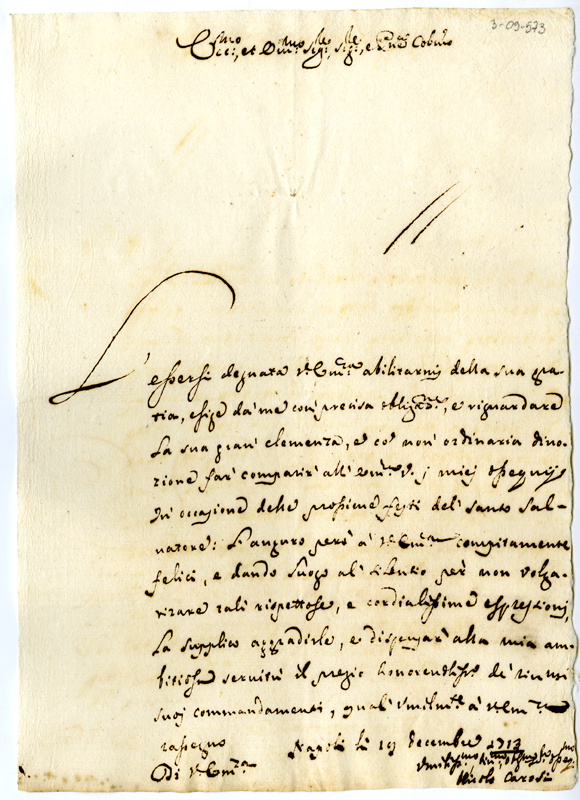 3-09-573
L'essersi degnata V. Em.za abilitarmi della sua gra-
tia, esige da me con precisa oblig.ne, e riguardare
la sua gran' clemenza, e co' non' ordinaria divo-
zione far' comparir' all' Em.za V. i miej ossequij
in' occasione delle prossime feste del' Santo Sal-
vatore: L'auguro però à V. Em.za compitamente
felici, e dando luogo al' silentio per non volga-
rizare tali rispettose, e cordialissime espressionj,
La supplico aggradirle, e dispensar' alla mia am-
bitiosa servitù il pregio honorendiss.o de' riveriti
suoj commandamenti, qual' umilm.te à V. Em.za
rassegno
Napoli li 19 Decembre 1713
Di V. Em.za
Nicolo Carosi